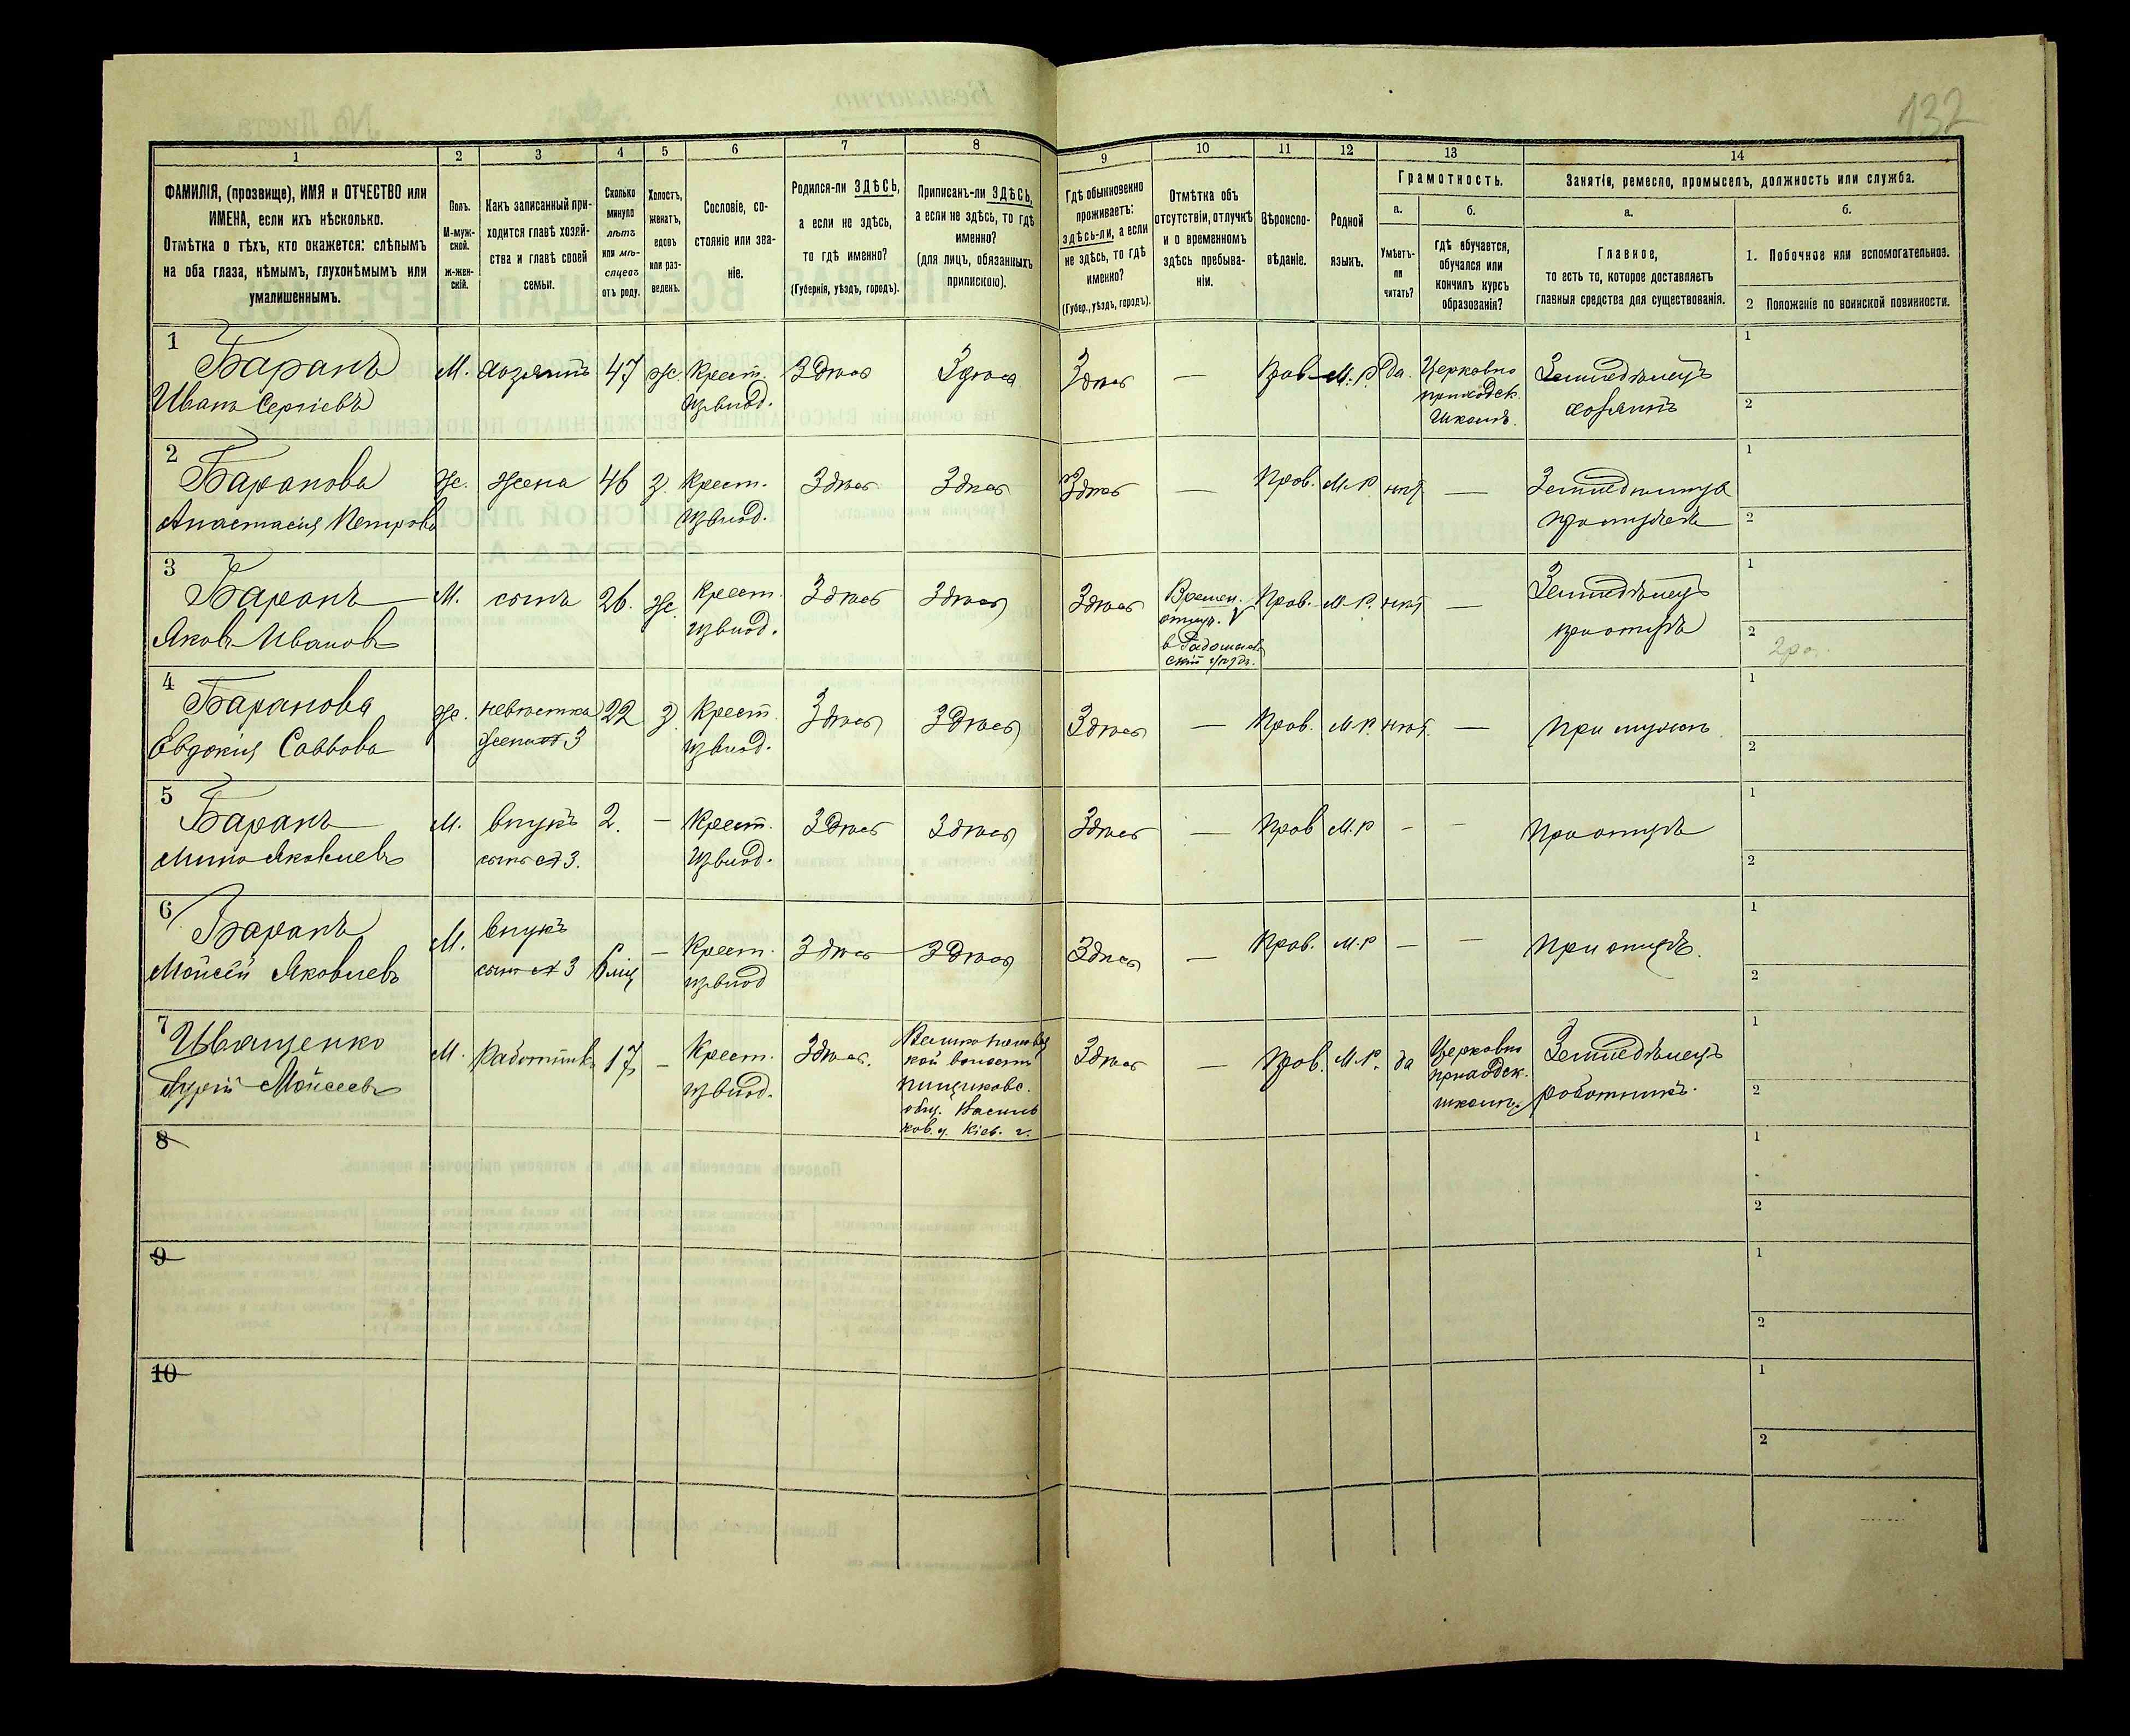 132
1 2 3 4 5 6 7 8 9 10 11 12 13 14
ФАМИЛІЯ, (прозвище), ИМЯ и ОТЧЕСТВО или
ИМЕНА, если ихъ нѣсколько.
Отмѣтка о тѣхъ, кто окажется: слѣпымъ
на оба глаза, нѣмымъ, глухонѣмымъ или
умалишеннымъ.
Полъ.
М-муж-
ской.
Ж-жен-
скій.
Какъ записанный при-
ходится главѣ хозяй-
ства и главѣ своей
семьи.
Сколько
минуло
лѣтъ
или мѣ-
сяцевъ
отъ роду.
Холостъ,
женатъ,
вдовъ
или раз-
веденъ.
Сословіе, со-
стояніе или зва-
ніе.
Родился-ли ЗДѢСЬ,
а если не здѣсь,
то гдѣ именно?
(Губернія, уѣздъ, городъ).
Приписанъ-ли ЗДѢСЬ,
а если не здѣсь, то гдѣ
именно?
(для лицъ, обязанныхъ
припискою).
Гдѣ обыкновенно
проживаетъ:
здѣсь-ли, а если
не здѣсь, то гдѣ
именно?
(Губер., уѣздъ, городъ).
Отмѣтка объ
отсутствіи, отлучкѣ
и о временномъ
здѣсь пребыва-
ніи.
Вѣроиспо-
вѣданіе.
Родной
языкъ.
Грамотность.
а.
Умѣетъ-
ли
читать?
б.
гдѣ обучается,
обучался или
кончилъ курсъ
образованія?
Занятіе, ремесло, промыселъ, должность или служба.
а.
Главное,
то есть то, которое доставляетъ
главныя средства для существованія.
б.
1. Побочное или вспомогательное.
2 Положеніе по воинской повинности.
1 Баранъ М. хозяинъ 47 ж. Крест. Здѣсь Здѣсь Здѣсь — Прав. М.Р. да. Церковно Земледѣлецъ 1
Иванъ Сергіевъ из влад. приходск. хозяинъ 2
школѣ.
2 Баранова ж. жена 46 з. Крест. Здѣсь Здѣсь Здѣсь — Прав. М.Р. нѣт — 1
Анастасія Петрова из влад. 2
3 Баранъ М. сынъ 26. ж. Крест. Здѣсь Здѣсь Здѣсь Времен. Прав. М.Р. нѣт — Земледѣлецъ 1
Яковъ Ивановъ из влад. отлуч. при отцѣ 2
4 Баранова ж. невѣстка 22 з. Крест. Здѣсь Здѣсь Здѣсь — Прав. М.Р. нѣт. — При мужѣ 1
Евдокія Саввова жена № 3 из влад. 2
5 Баранъ М. внукъ 2. — Крест. Здѣсь Здѣсь Здѣсь — Прав М.Р — — При отцѣ 1
Мина Яковлевъ сынъ № 3. из влад. 2
6 Баранъ М. внукъ 6 мц — Крест. Здѣсь Здѣсь Здѣсь — Прав. М.Р — — При отцѣ. 1
Моисей Яковлевъ сынъ № 3 из влад 2
7 Иващенко М. Работникъ 17 — Крест. Здѣсь. Здѣсь — Прав. М.Р. да Церковно Земледѣлецъ 1
Моисеевъ из влад. кой волости приходск. работникъ. 2
общ. Василь школѣ
ков. у. Кіев. г.
8 1
2
9 1
2
10 1
2